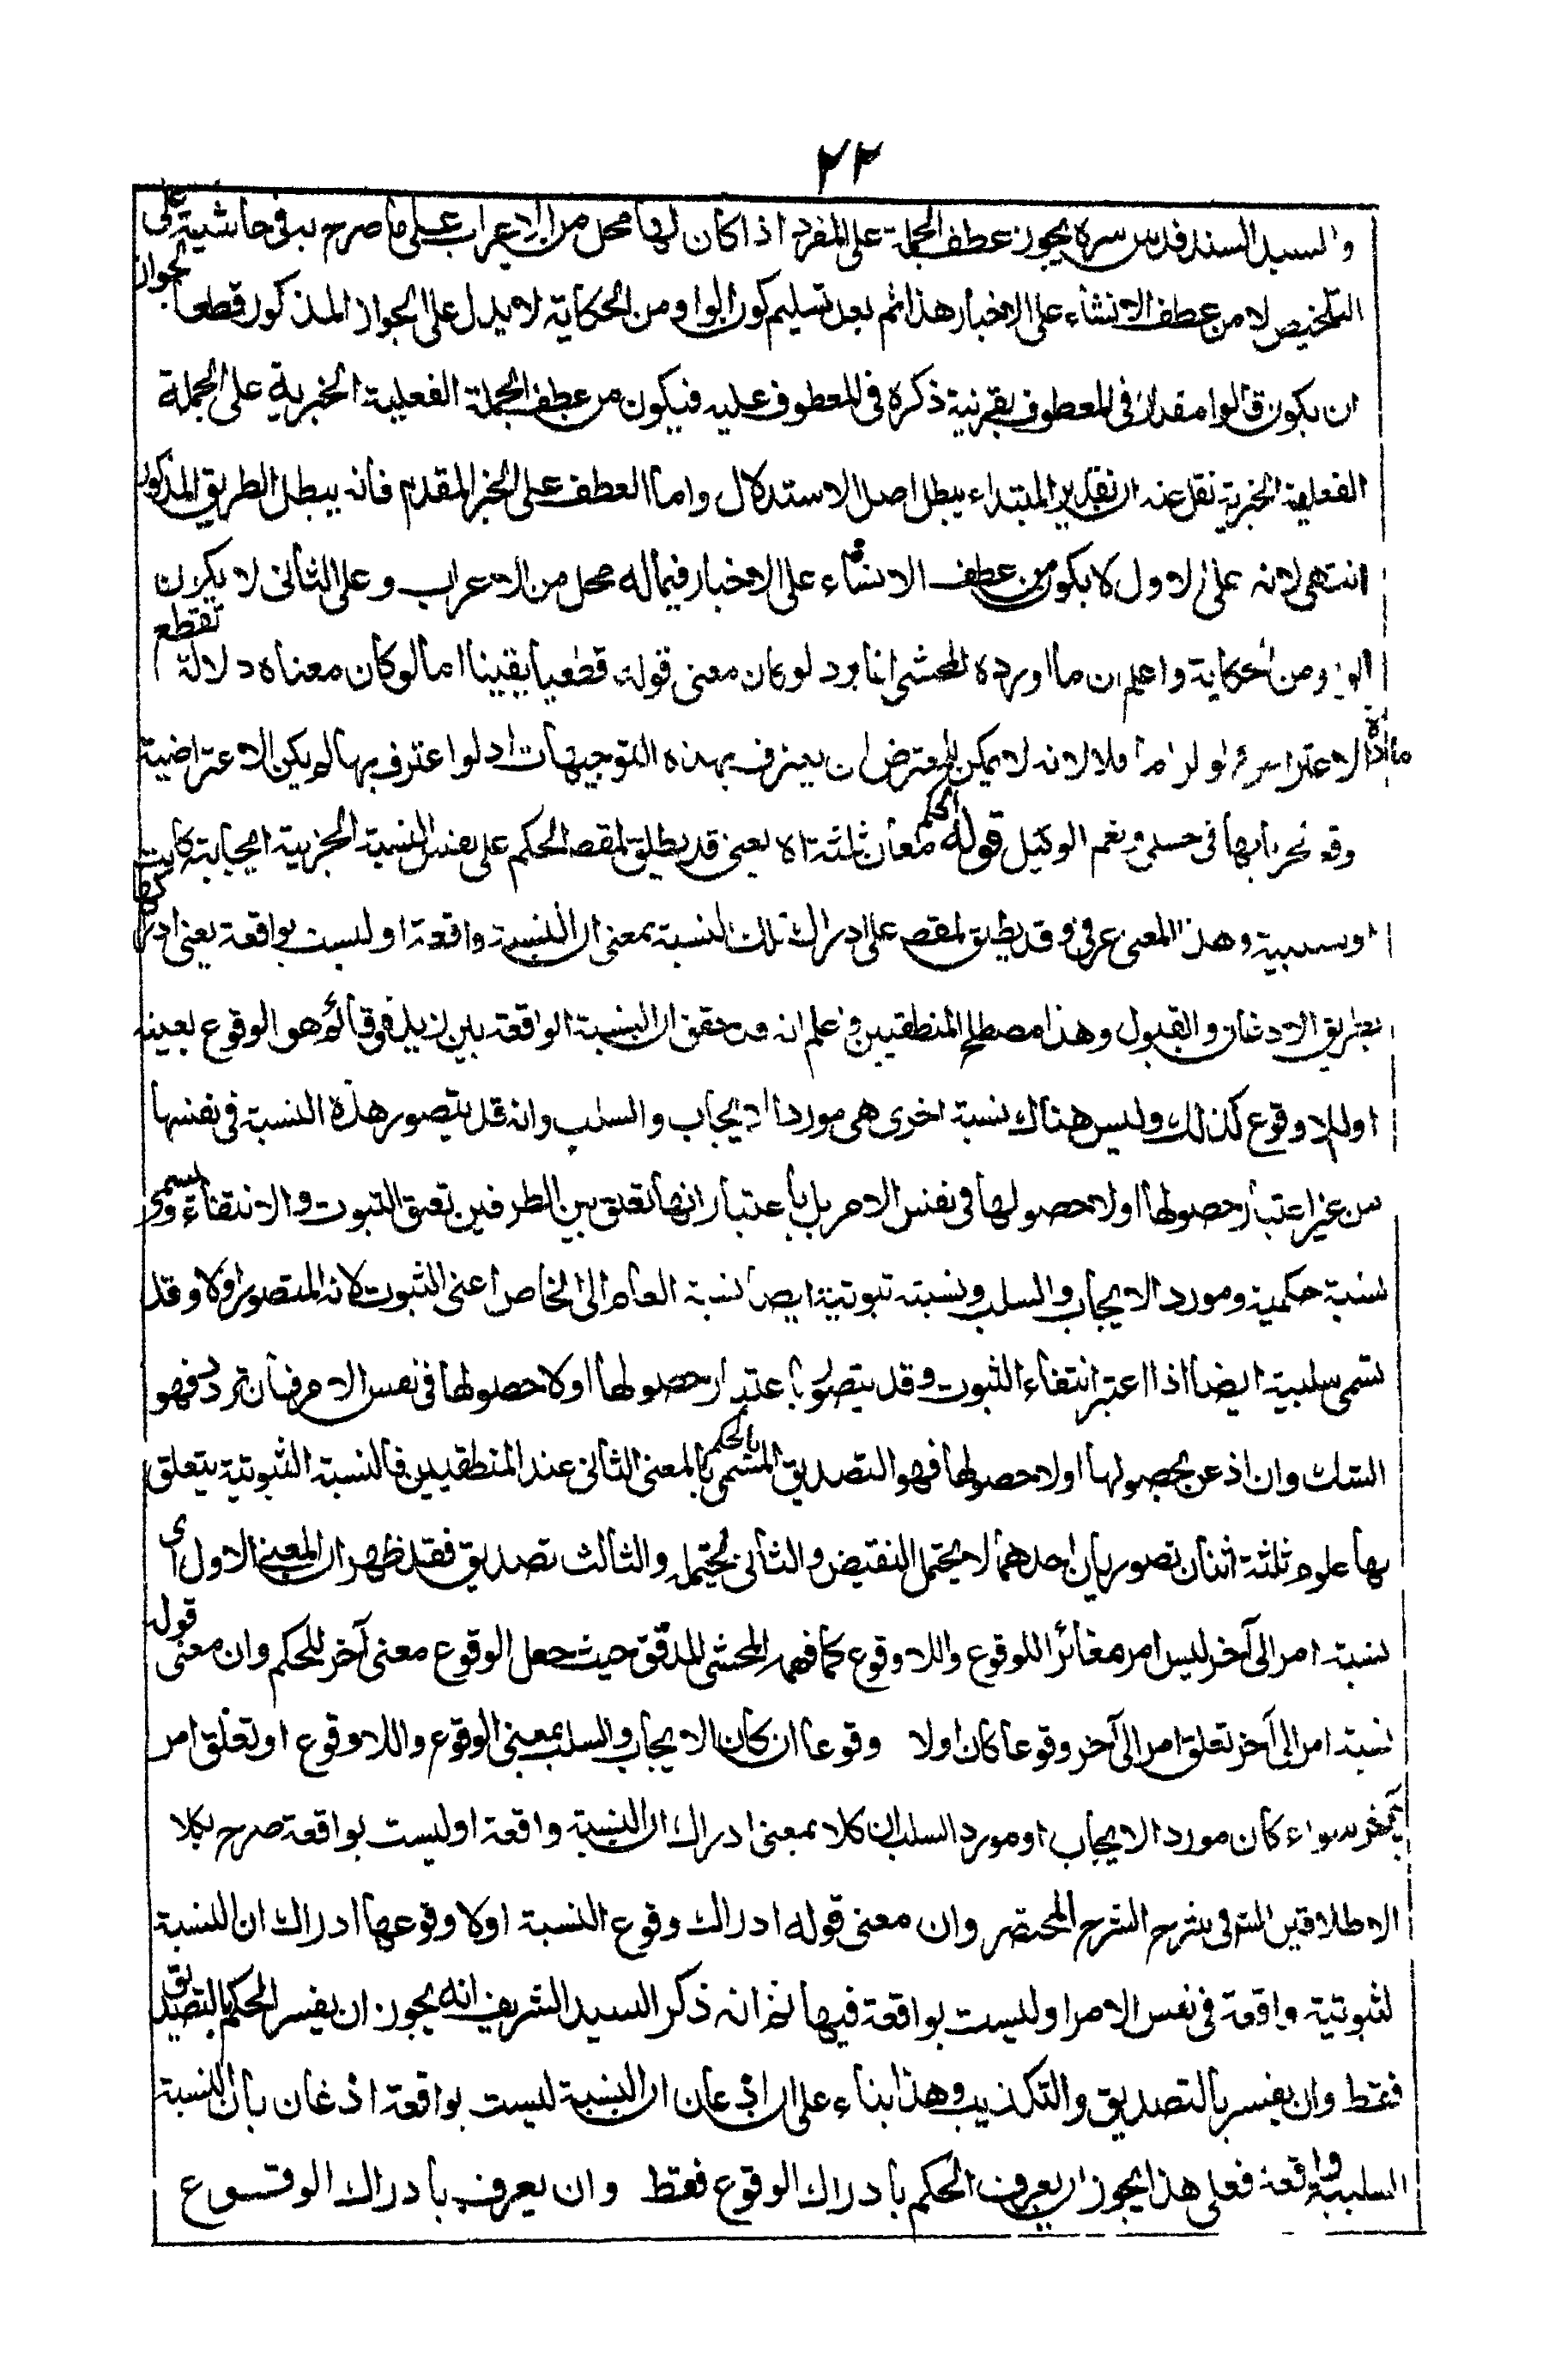 ٢٢
والسيد السند قدس سره يجوز عطف الجملة على المفرد اذا كان لها محل من الاعراب على ما صرح به فى حاشية على
التلخيص لا من عطف الانشاء على الاخبار هذا ثم بعد تسليم كون الواو من الحكاية لا يدل على الجواز المذكور قطعا لجواز
ان يكون قالوا مقدرا فى المعطوف بقرينة ذكره فى المعطوف عليه فيكون من عطف الجملة الفعلية الخبرية على الجملة
الفعلية الخبرية نقل عنه ان تقدير المبتداء يبطل اصل الاستدلال واما العطف على الخبر المقدم فانه يبطل الطريق المذكور
انتهى لانه على الاول لا يكون من عطف الانشاء على الاخبار فيما له محل من الاعراب وعلى الثانى لا يكون
الواو من الحكاية واعلم ان ما اورده المحشى انما يرد لو كان معنى قوله قطعيا يقينا اما لو كان معناه دلالة تقطع
مادة الاعتراض فلا لانه لا يمكن للمعترض ان يعترف بهذه التوجيهات اذ لو اعترف بها لم يكن الاعتراضية
فى حسبى ونعم الوكيل قوله الحكم معان ثلثة اه يعنى قد يطلق لفظ الحكم على نفس النسبة الخبرية ايجابية كانت
او سلبية وهذا المعنى عرفى وقد يطلق لفظه على ادراك تلك النسبة بمعنى ان النسبة واقعة او ليست بواقعة يعنى ادراكها
بطريق الاذعان والقبول وهذا مصطلح المنطقيين واعلم انه قد حقق ان النسبة الواقعة بين زيد وقائم هو الوقوع بعينه
او اللاوقوع كذلك وليس هناك نسبة اخرى هى مورد الايجاب والسلب وانه قد يتصور هذه النسبة فى نفسها
من غير اعتبار حصولها او لا حصولها فى نفس الامر بل باعتبار انها تعلق بين الطرفين تعلق الثبوت والانتفاء وتسمى
نسبة حكمية ومورد الايجاب والسلب ونسبته ثبوتية ايضا نسبة العام الى الخاص اعنى الثبوت لانه المتصور اولا وقد
تسمى سلبية ايضا اذا اعتبر انتفاء الثبوت وقد يتصور باعتبار حصولها او لا حصولها فى نفس الامر فان تردد فهو
الشك وان اذعن بحصولها او لا حصولها فهو التصديق المسمى بالحكم بالمعنى الثانى عند المنطقيين فالنسبة الثبوتية يتعلق
بها علوم ثلثة اثنان تصوريان احدهما لا يحتمل النقيض والثانى يحتمله والثالث تصديق فقد ظهر ان المعنى الاول اى
نسبة امر الى آخر ليس امر مغائرا للوقوع واللاوقوع كما فهمه المحشى المدقق حيث جعل الوقوع معنى آخر للحكم وان معنى قوله
نسبة امر الى آخر تعلق امر الى آخر وقوعا كان او لا وقوعا ان كان الايجاب والسلب بمعنى الوقوع واللاوقوع او تعلق امر
بآخر سواء كان مورد الايجاب او مورد السلب ان كلا بمعنى ادراك ان النسبة واقعة او ليست بواقعة صرح بكلا
الاطلاقين فى شرح الشرح المختصر وان معنى قوله ادراك وقوع النسبة او لا وقوعها ادراك ان النسبة
لثبوتية واقعة فى نفس الامر او ليست بواقعة فيها ثم انه ذكر السيد الشريف انه يجوز ان يفسر الحكم بالتصديق
فقط وان يفسر بالتصديق والتكذيب وهذا بناء على ان اذعان ان النسبة ليست بواقعة اذعان بان النسبة
السلبية واقعة فعلى هذا يجوز ان يعرف الحكم بادراك الوقوع فقط وان يعرف بادراك الوقوع